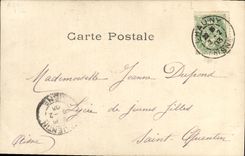 Carte Postale
CHAUNY
Mademoiselle Jeanne Dupond
Lycée de jeunes filles
Saint Quentin
Aisne